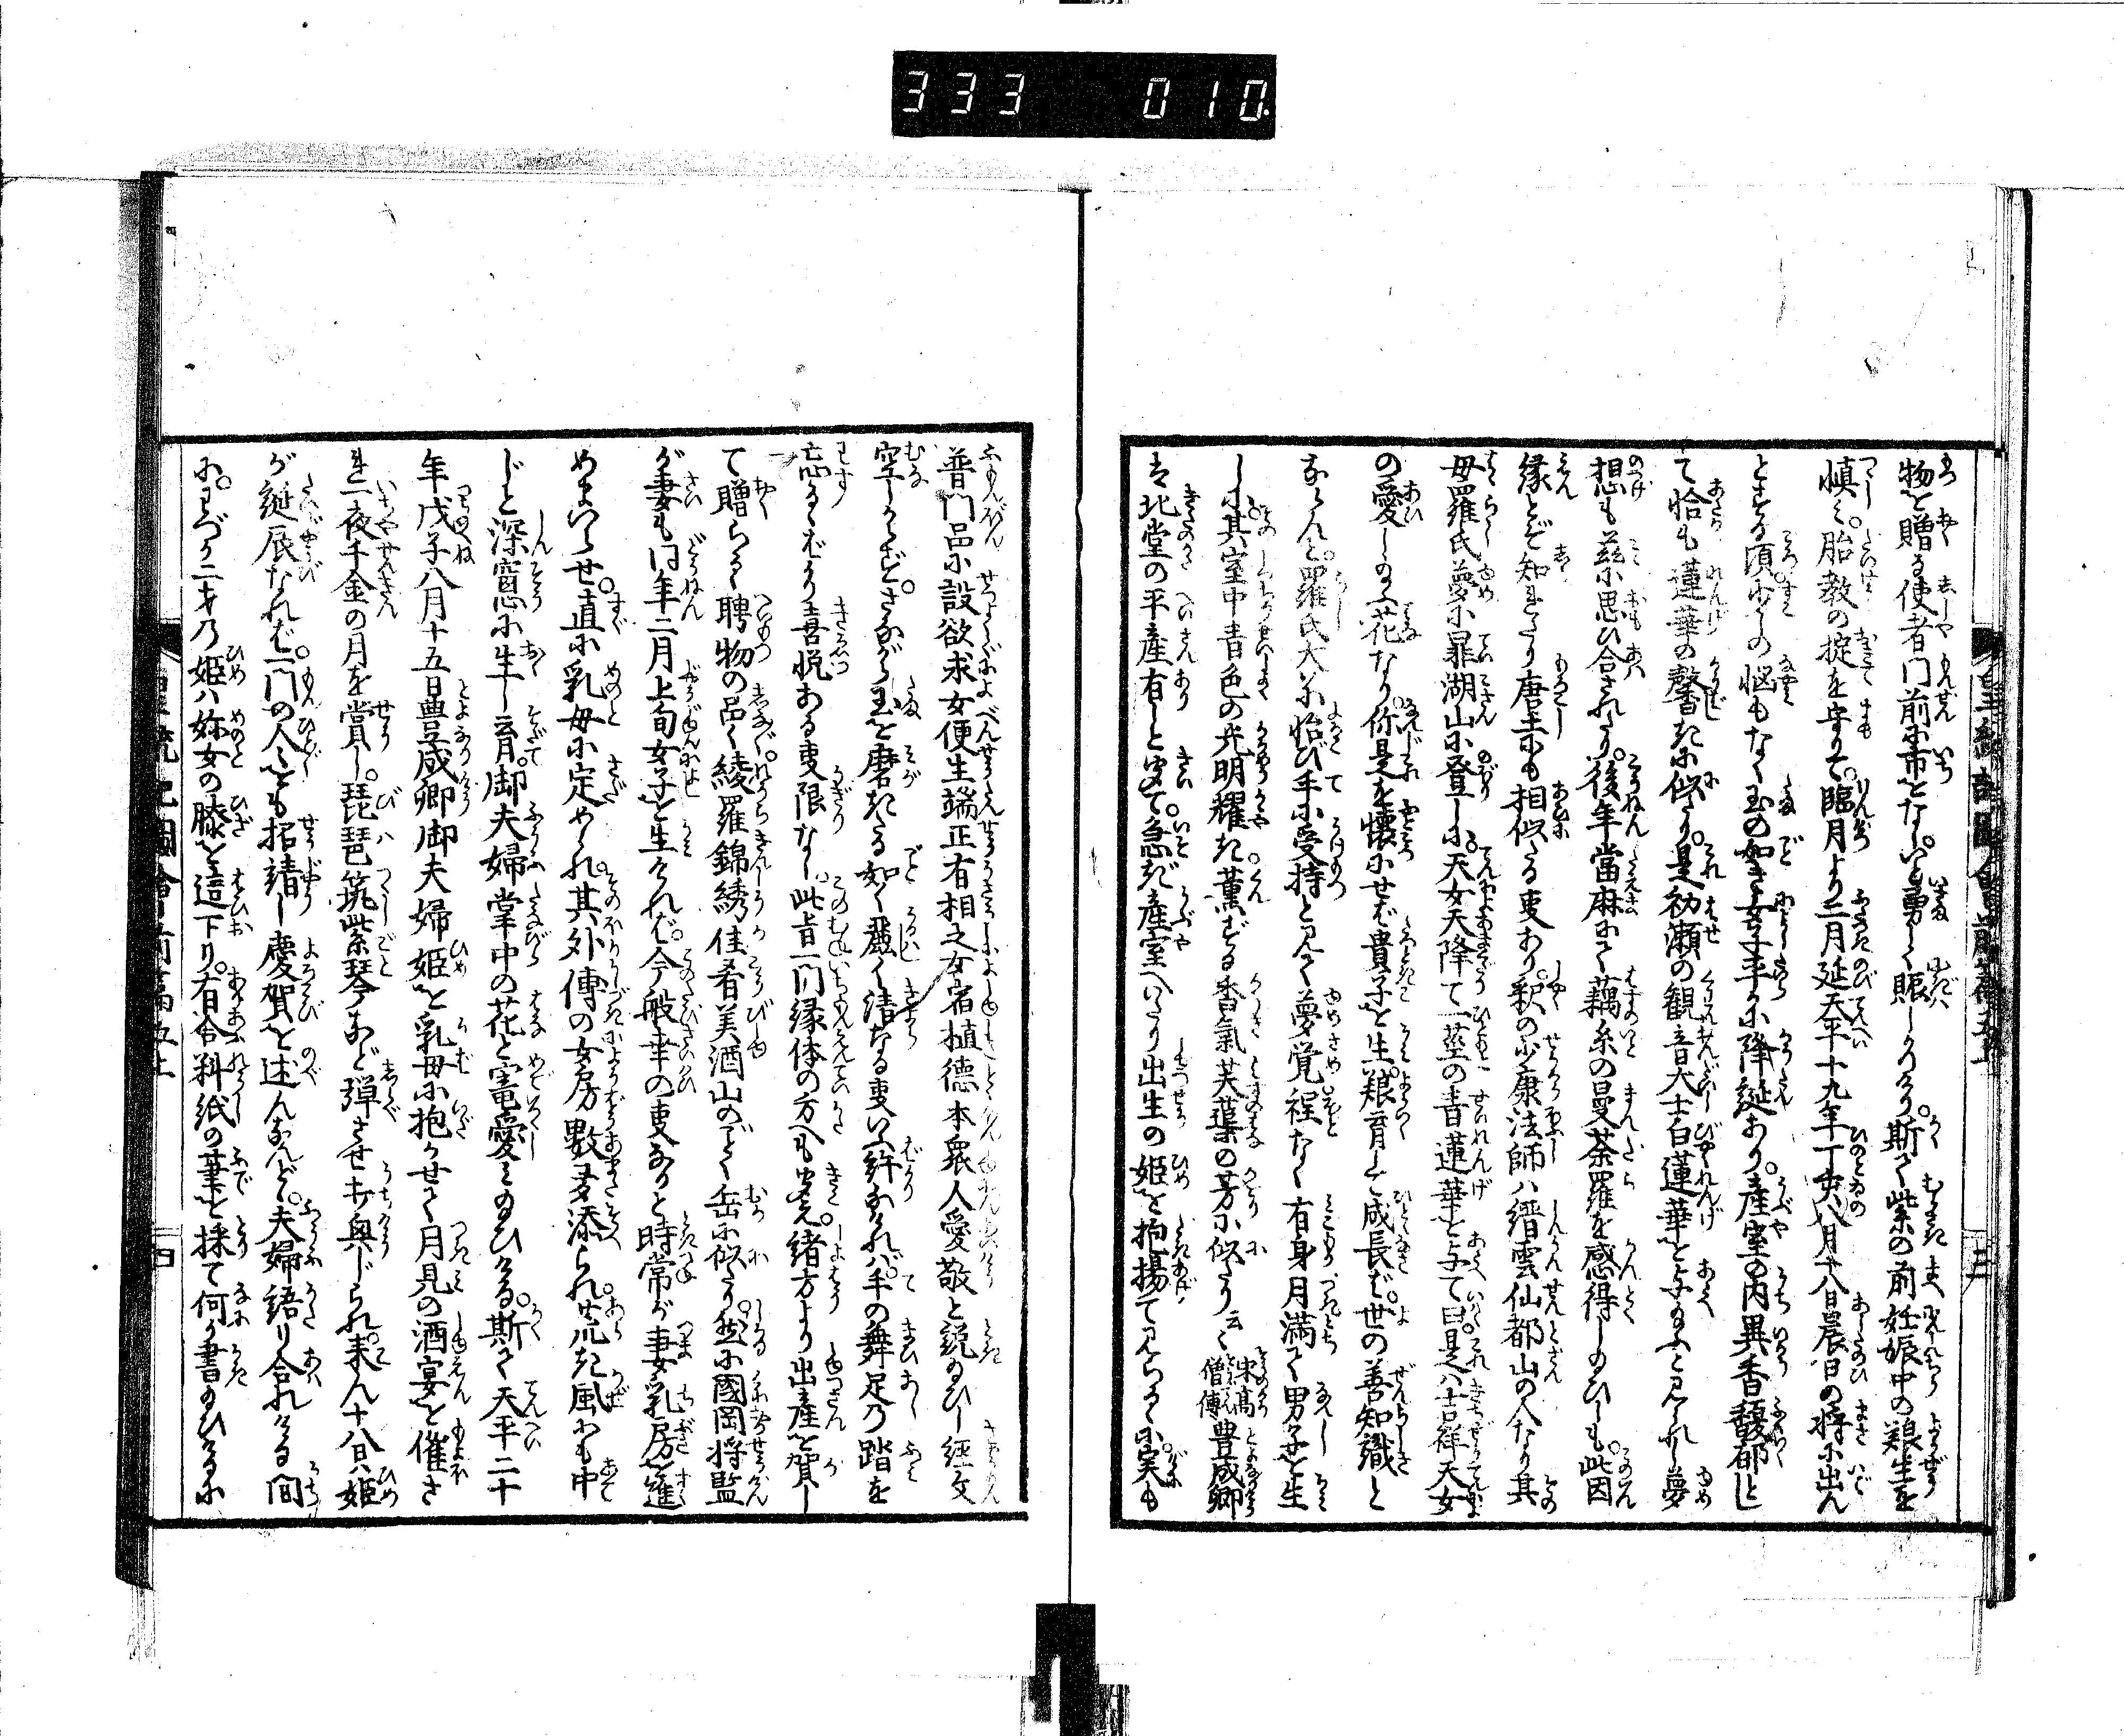 333 010.
物を贈る使者門前に市をなしいと勇しく賑しかりけり。斯て紫の前妊娠中の艱生を
慎み。胎教の掟を守りて。臨月より二月延天平十九年丁亥八月十八日晨日の将に出ん
とする頃少しの悩もなく玉の如き女子平かに降誕あり。産室の内異香馥郁として
て恰も蓮華の馨きに似たり。是初瀬の観音大士白蓮華を与ふと見られし夢
想も茲に思ひ合されたり。後年當麻にて藕糸の曼荼羅を感得し給ひしも。此因
縁とぞ知きたり唐土にも相似たる事あり。釈の少康法師ハ縉雲仙都山の人なり其
母羅氏夢に鼎湖山に登しに。天女天降て一茎の青蓮華を与て曰。是ハ吉祥天女
の愛し給ふ花なり。你是を懐にせば貴子を生。艱育して成長ば。世の善知識と
なるらんと。羅氏大に怡び手に受持と見て夢覚程なく有身月満て男子を生
しに。其室中青色の光明耀き。薫ずる香氣芙蕖の芳に似たり云々 宋高僧傳 豊成卿
は北堂の平産有しと聞て。急ぎ産室へいたり出生の姫を抱揚て見らるゝに。実も
普門品に設欲求女便生端正有相之女宿植徳本衆人愛敬と説給ひし経文
空しからず。さながら玉を磨きたる如く麗く清なる事いふ許なけれバ。手の舞足の踏を
忘るゝばかり喜悦ある事限なし。此旨一門縁体の方へも聞え。緒方より出産を賀し
て贈らるゝ聘物の品々綾羅錦綉佳肴美酒山のごとく岳に似たり。然るに國岡将監
が妻も同年二月上旬女子を生けれバ。今般幸の事なりと時常が妻乳房を進
めまいらせ。直に乳母に定められ。其外傅の女房数多添られ。荒き風にも中
じと深窓に生し育。御夫婦掌中の花と寵愛し給ひける。斯て天平二十
年戊子八月十五日豊成卿御夫婦姫を乳母に抱かせて月見の酒宴を催さ
れ一夜千金の月を賞し。琵琶筑紫琴など弾させ打興じられ。来ん十八日ハ姫
が誕辰なれば。一門の人々をも招請し慶賀を述んなんど。夫婦語り合れける間
に。わづか二才の姫ハ妳女の膝を這下り。有合料紙の筆を採て何か書給ひけるに
皇統記圖會前篇五上
三
四